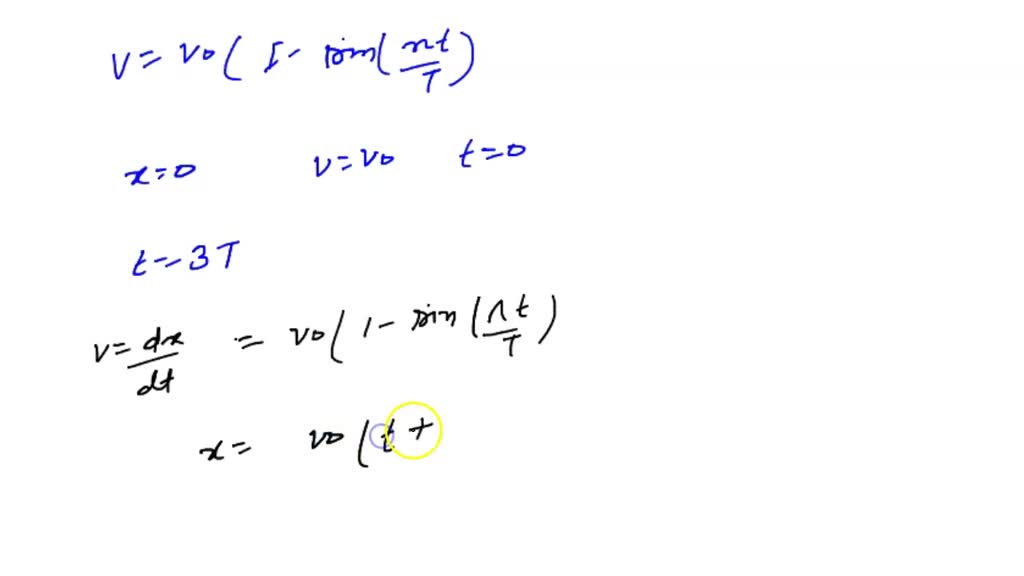 v = v0 ( 1 - sin( πt/T )
x = 0 v = v0 t = 0
t = 3T
v = dx/dt = v0 ( 1 - sin ( πt/T )
x = v0 ( t +